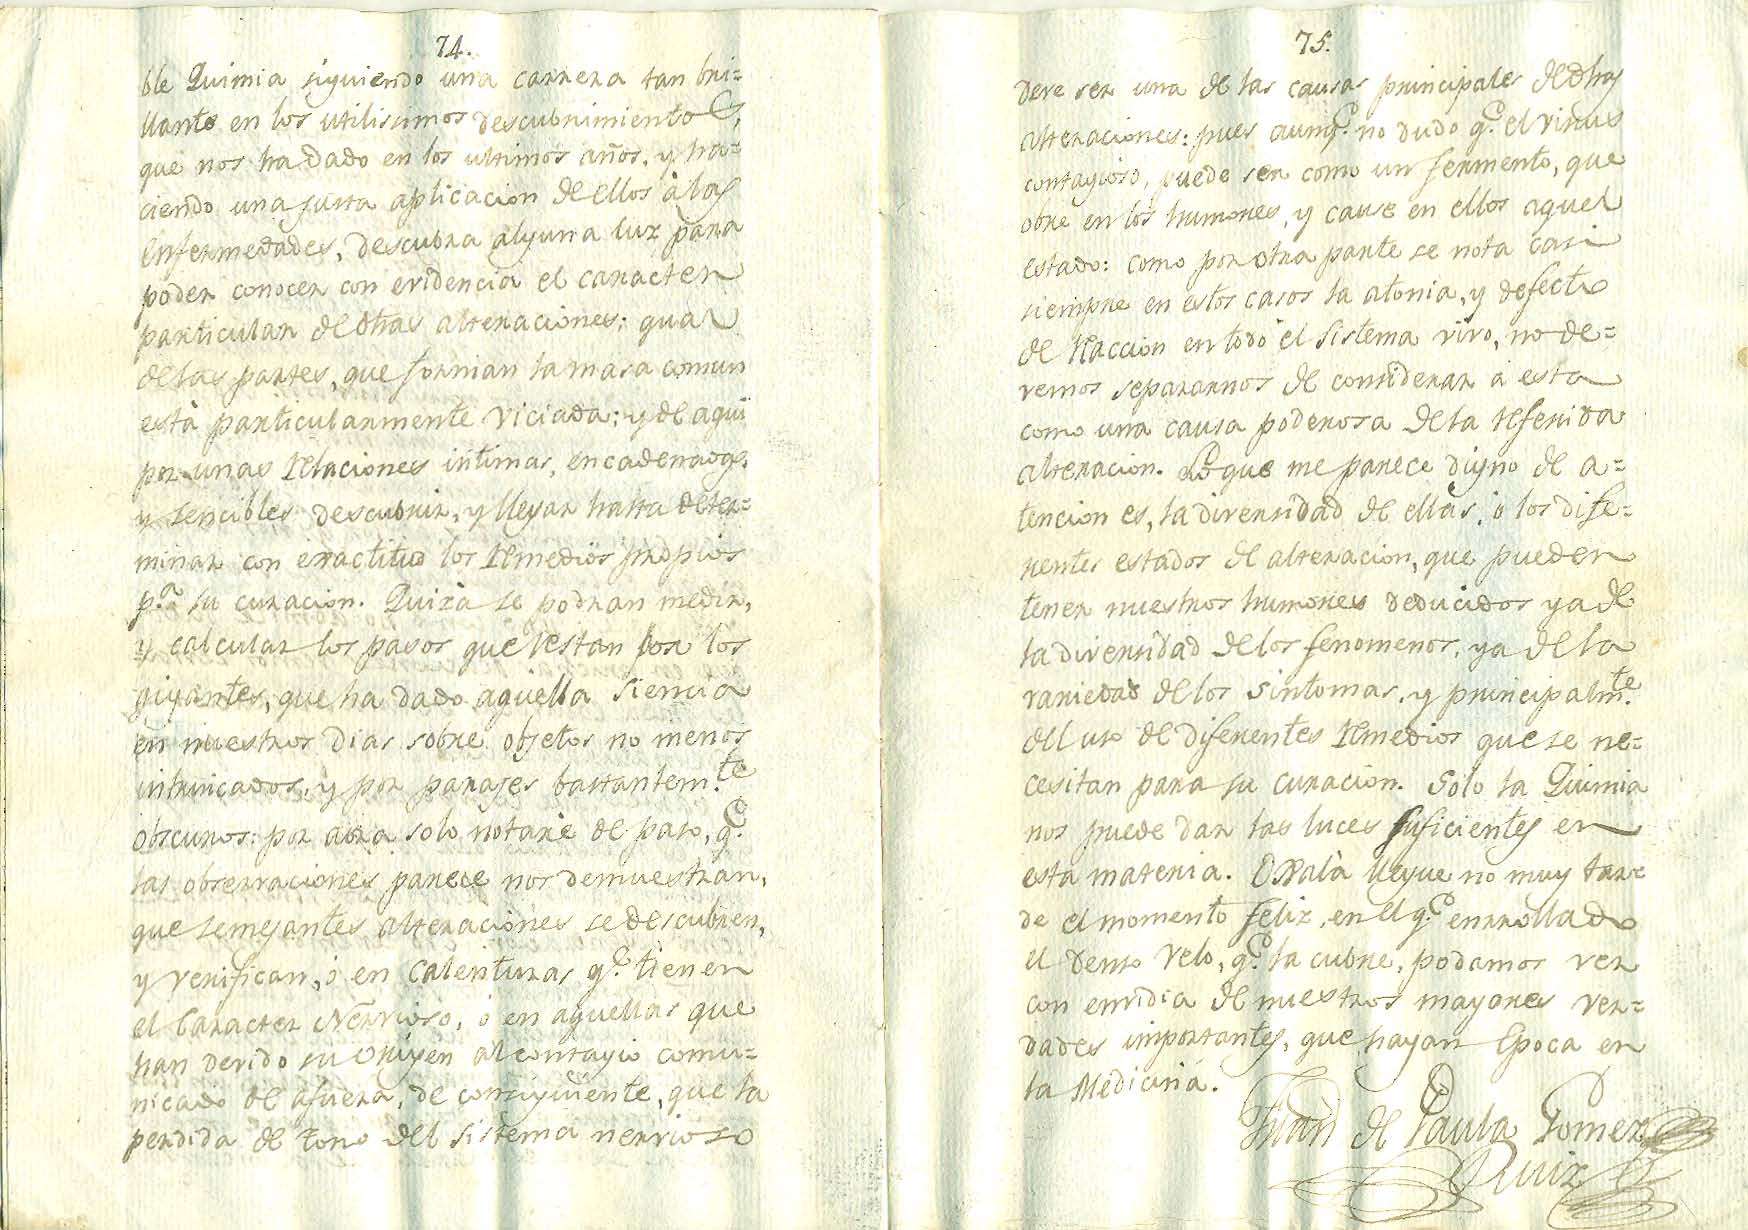 74.
ble Quimia siguiendo una carrera tan bri=
llante en los utilissimos descubrimientos,
que nos ha dado en los ultimos años, y ha=
ciendo una justa aplicacion de ellos à las
enfermedades, descubra alguna luz para
poder conocer con evidencia el caracter
particular de dhas alteraciones: qual
de las partes, que forman la masa comun
està particularmente viciada: y de aqui
por unas Relaciones intimas, encadenadas,
y sencibles descubrir, y llegar hasta deter=
minar con exactitud los Remedios propios
p.ª su curacion. Quizà se podran medir,
y calcular los pasos que restan por los
gigantes, que ha dado aquella siencia
en nuestros dias sobre objetos no menos
intrincados, y por parajes bastantem.te
obscuros: por aora solo notarè de paso, q.e
las observaciones parece nos demuestran,
que semejantes alteraciones se descubren,
y verifican, ò en calenturas q.e tienen
el caracter Nervioso, ò en aquellas que
han devido su origen al contagio comu=
nicado de afuera, de consiguiente, que la
perdida de tono del sistema nervioso
75.
deve ser una de las causas principales de dhas
alteraciones: pues aunq.e no dudo q.e el virus
contagioso, puede ser como un fermento, que
obre en los humores, y cause en ellos aquel
estado: como por otra parte se nota casi
siempre en estos casos la atonia, y defecto
de Reaccion en todo el sistema vivo, no de=
vemos separarnos de considerar à esta
como una causa poderosa de la Referida
alteracion. Lo que me parece digno de a=
tencion es, la diversidad de ellas, ò los dife=
rentes estados de alteracion, que pueden
tener nuestros humores deducidos ya de
la diversidad de los fenomenos, ya de la
variedad de los sintomas, y principalm.te
del uso de diferentes Remedios que se ne=
cesitan para su curacion. Solo la Quimia
nos puede dar las luces suficientes en
esta materia. Oxalà llegue no muy tar=
de el momento feliz, en el q.e enrrollado
el denso velo, q.e la cubre, podamos ver
con envidia de nuestros mayores ver=
dades importantes, que hagan Epoca en
la Medicina.
Juan de Paula Gomez
Ruiz